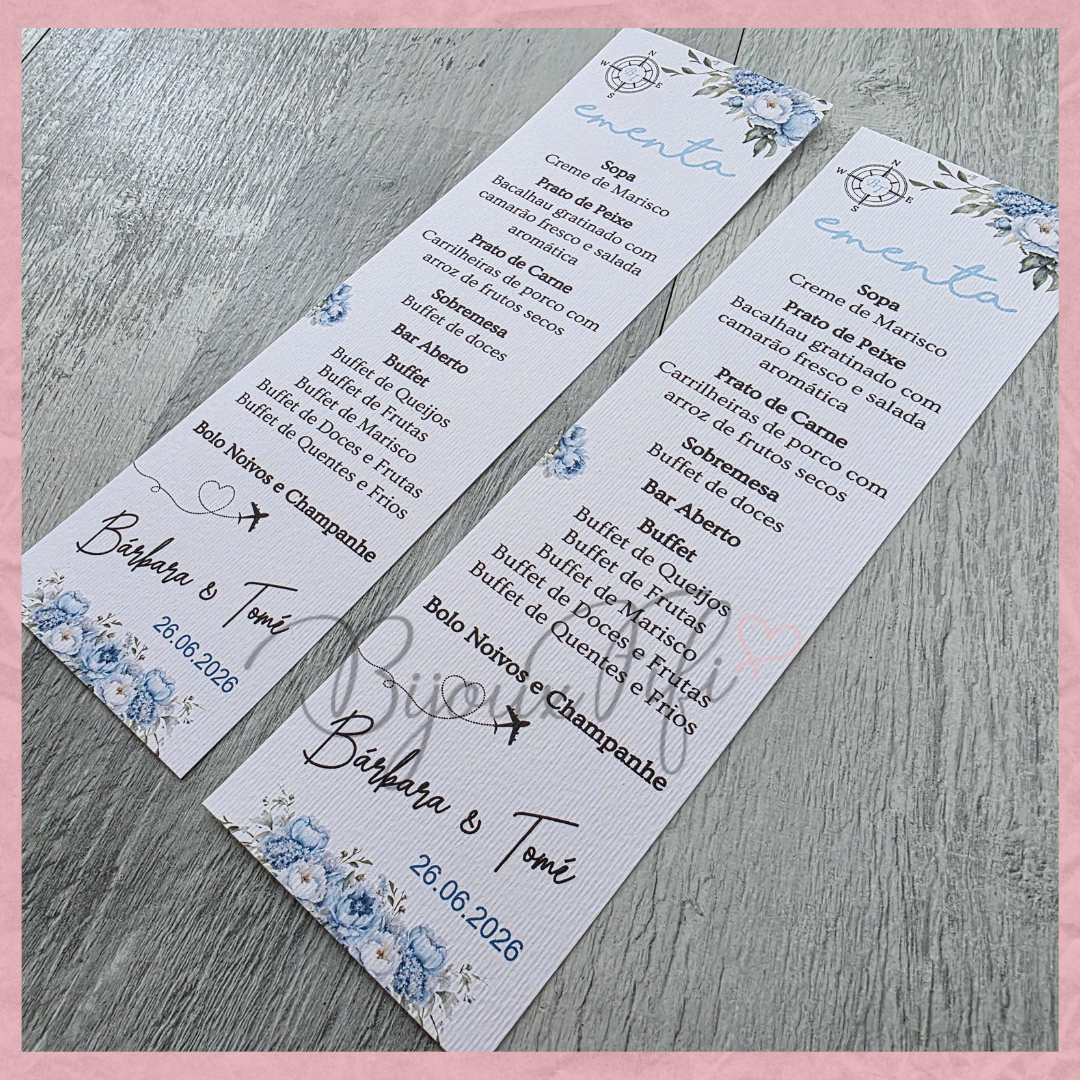 N
W E
S
ementa
Sopa
Creme de Marisco
Prato de Peixe
Bacalhau gratinado com
camarão fresco e salada
aromática
Prato de Carne
Carrilheiras de porco com
arroz de frutos secos
Sobremesa
Buffet de doces
Bar Aberto
Buffet
Buffet de Queijos
Buffet de Frutas
Buffet de Marisco
Buffet de Doces e Frutas
Buffet de Quentes e Frios
Bolo Noivos e Champanhe
Bárbara & Tomé
26.06.2026
N
W E
S
ementa
Sopa
Creme de Marisco
Prato de Peixe
Bacalhau gratinado com
camarão fresco e salada
aromática
Prato de Carne
Carrilheiras de porco com
arroz de frutos secos
Sobremesa
Buffet de doces
Bar Aberto
Buffet
Buffet de Queijos
Buffet de Frutas
Buffet de Marisco
Buffet de Doces e Frutas
Buffet de Quentes e Frios
Bolo Noivos e Champanhe
Bárbara & Tomé
26.06.2026